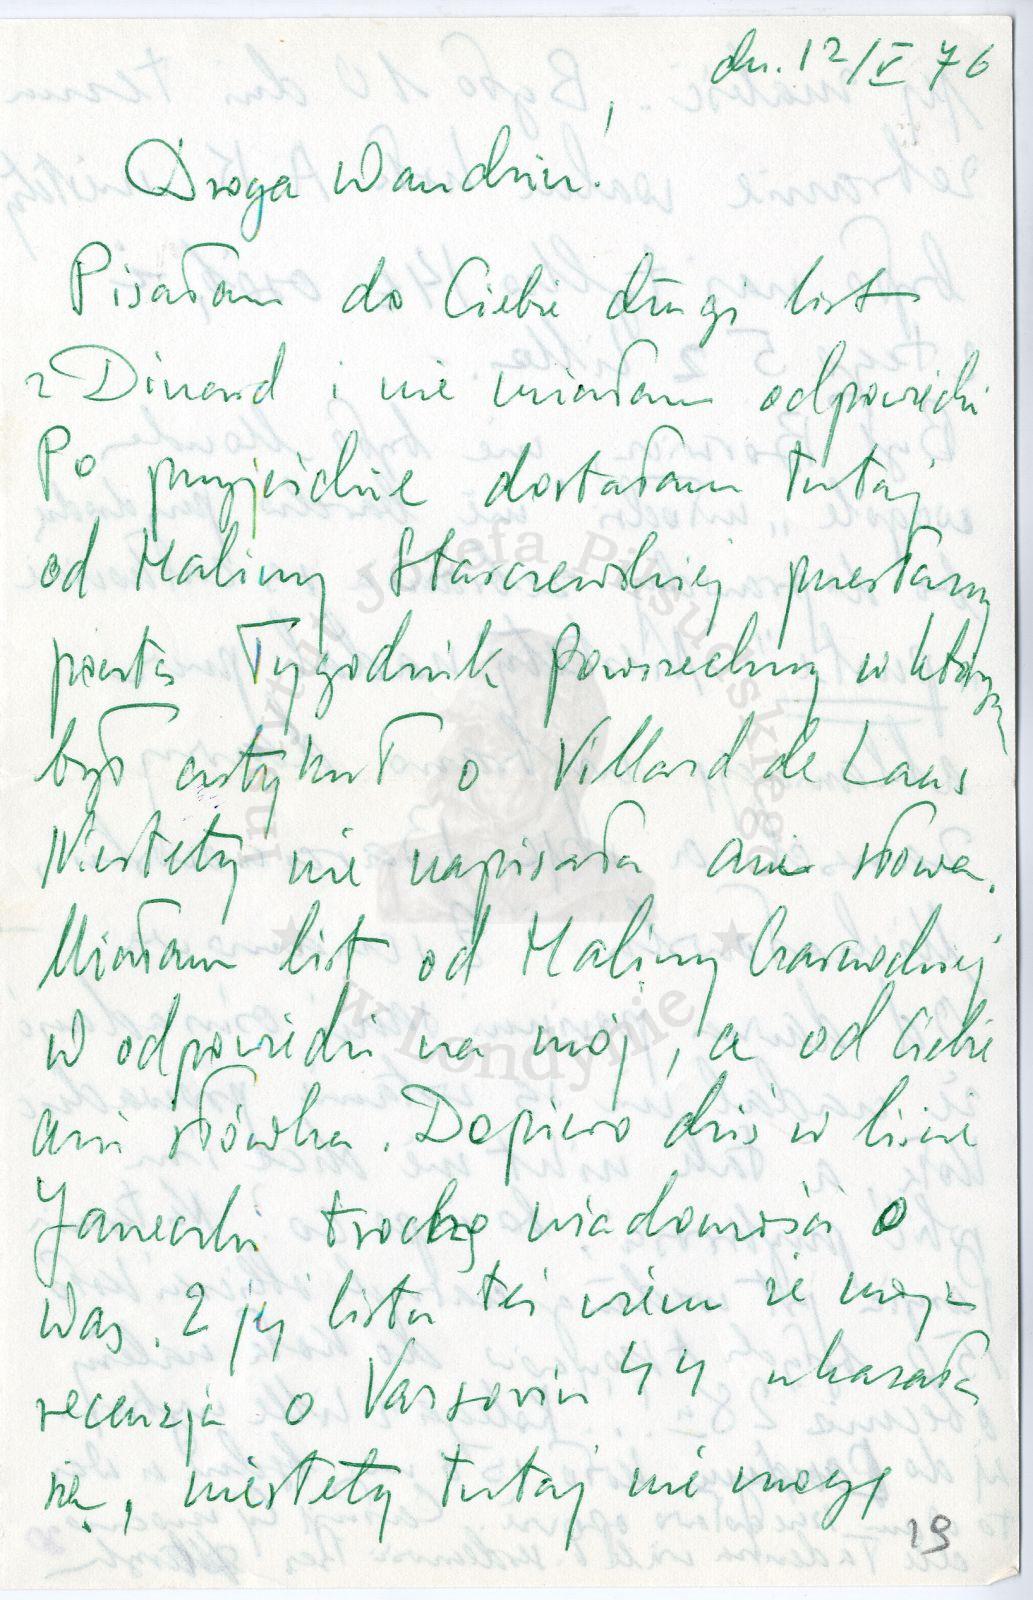 dn. 12/V 76
Droga Wandziu!
Pisałam do Ciebie długi list
z Dinard i nie miałam odpowiedzi
Po przyjeździe dostałam tutaj
od Haliny Staszewskiej przesłany
pocztą Tygodnik Powszechny w którym
był artykuł o Villard de Lans
Niestety nie napisała ani słowa.
Miałam list od Haliny Czarnockiej
w odpowiedzi na mój, a od Ciebie
ani słówka. Dopiero dziś w liście
Janeczki trochę wiadomości o
Was. Z jej listu też wiem że moja
recenzja o Varsovie 44 ukazała
się, niestety tutaj nie mogę
19
Instytut Józefa Piłsudskiego
w Londynie